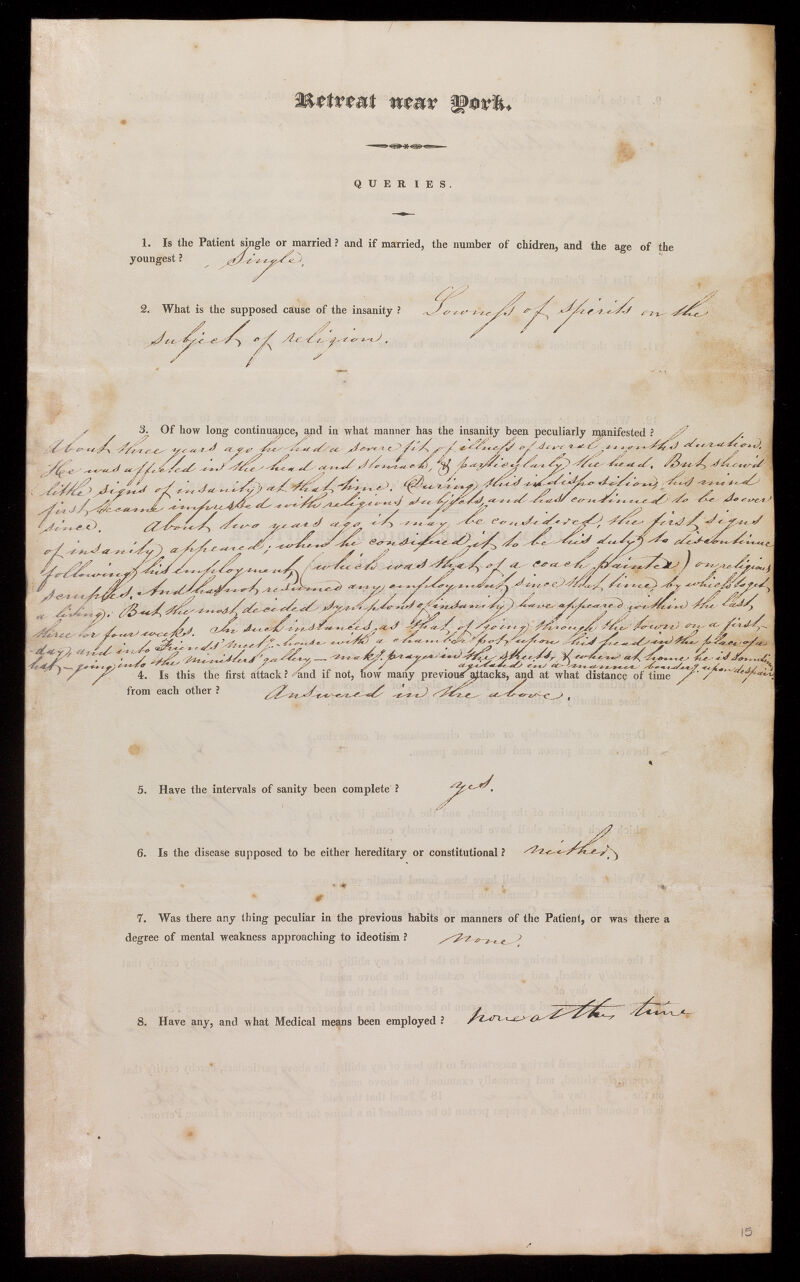 Retreat near York.
QUERIES.
1. Is the Patient single or married? and if married, the number of chidren, and the age of the
youngest? Single.
2. What is the supposed cause of the insanity? Lowness of spirits on the
subject of religion.
3. Of how long continuance, and in what manner has the insanity been peculiarly manifested?
About three years ago he had a severe fit of illness of several months duration.
He was affected in the head and stomach, & particularly the head. But shew'd
little signs of insanity at that time. During this indisposition his mind
first became impressed with religious subjects, and has continued to be so ever
since. About two years ago it may be considered, the first signs
of insanity appeared; when he considered it to be his duty to discontinue
following his employment, (which was that of a coach painter) on religious
scruples. And has not resumed any employment since that time by which to get
a living. But the most decided symptoms of insanity have appeared within the last
three or four weeks. In such instances as that of going through the town on a first-
day, and into Friends' meetg. house with a chamber pot upon his head in the place of a
hat, – going into the ministers' gallery – makg. prayer in the streets, & when at home he is sometimes
agitated in a manner borderg. upon despair.
4. Is this the first attack? and if not, how many previous attacks, and at what distance of time
from each other? Answered in the above.
5. Have the intervals of sanity been complete? yes.
6. Is the disease supposed to be either hereditary or constitutional? neither.
7. Was there any thing peculiar in the previous habits or manners of the Patient, or was there a
degree of mental weakness approaching to ideotism? None.
8. Have any, and what Medical means been employed? None at this time
15